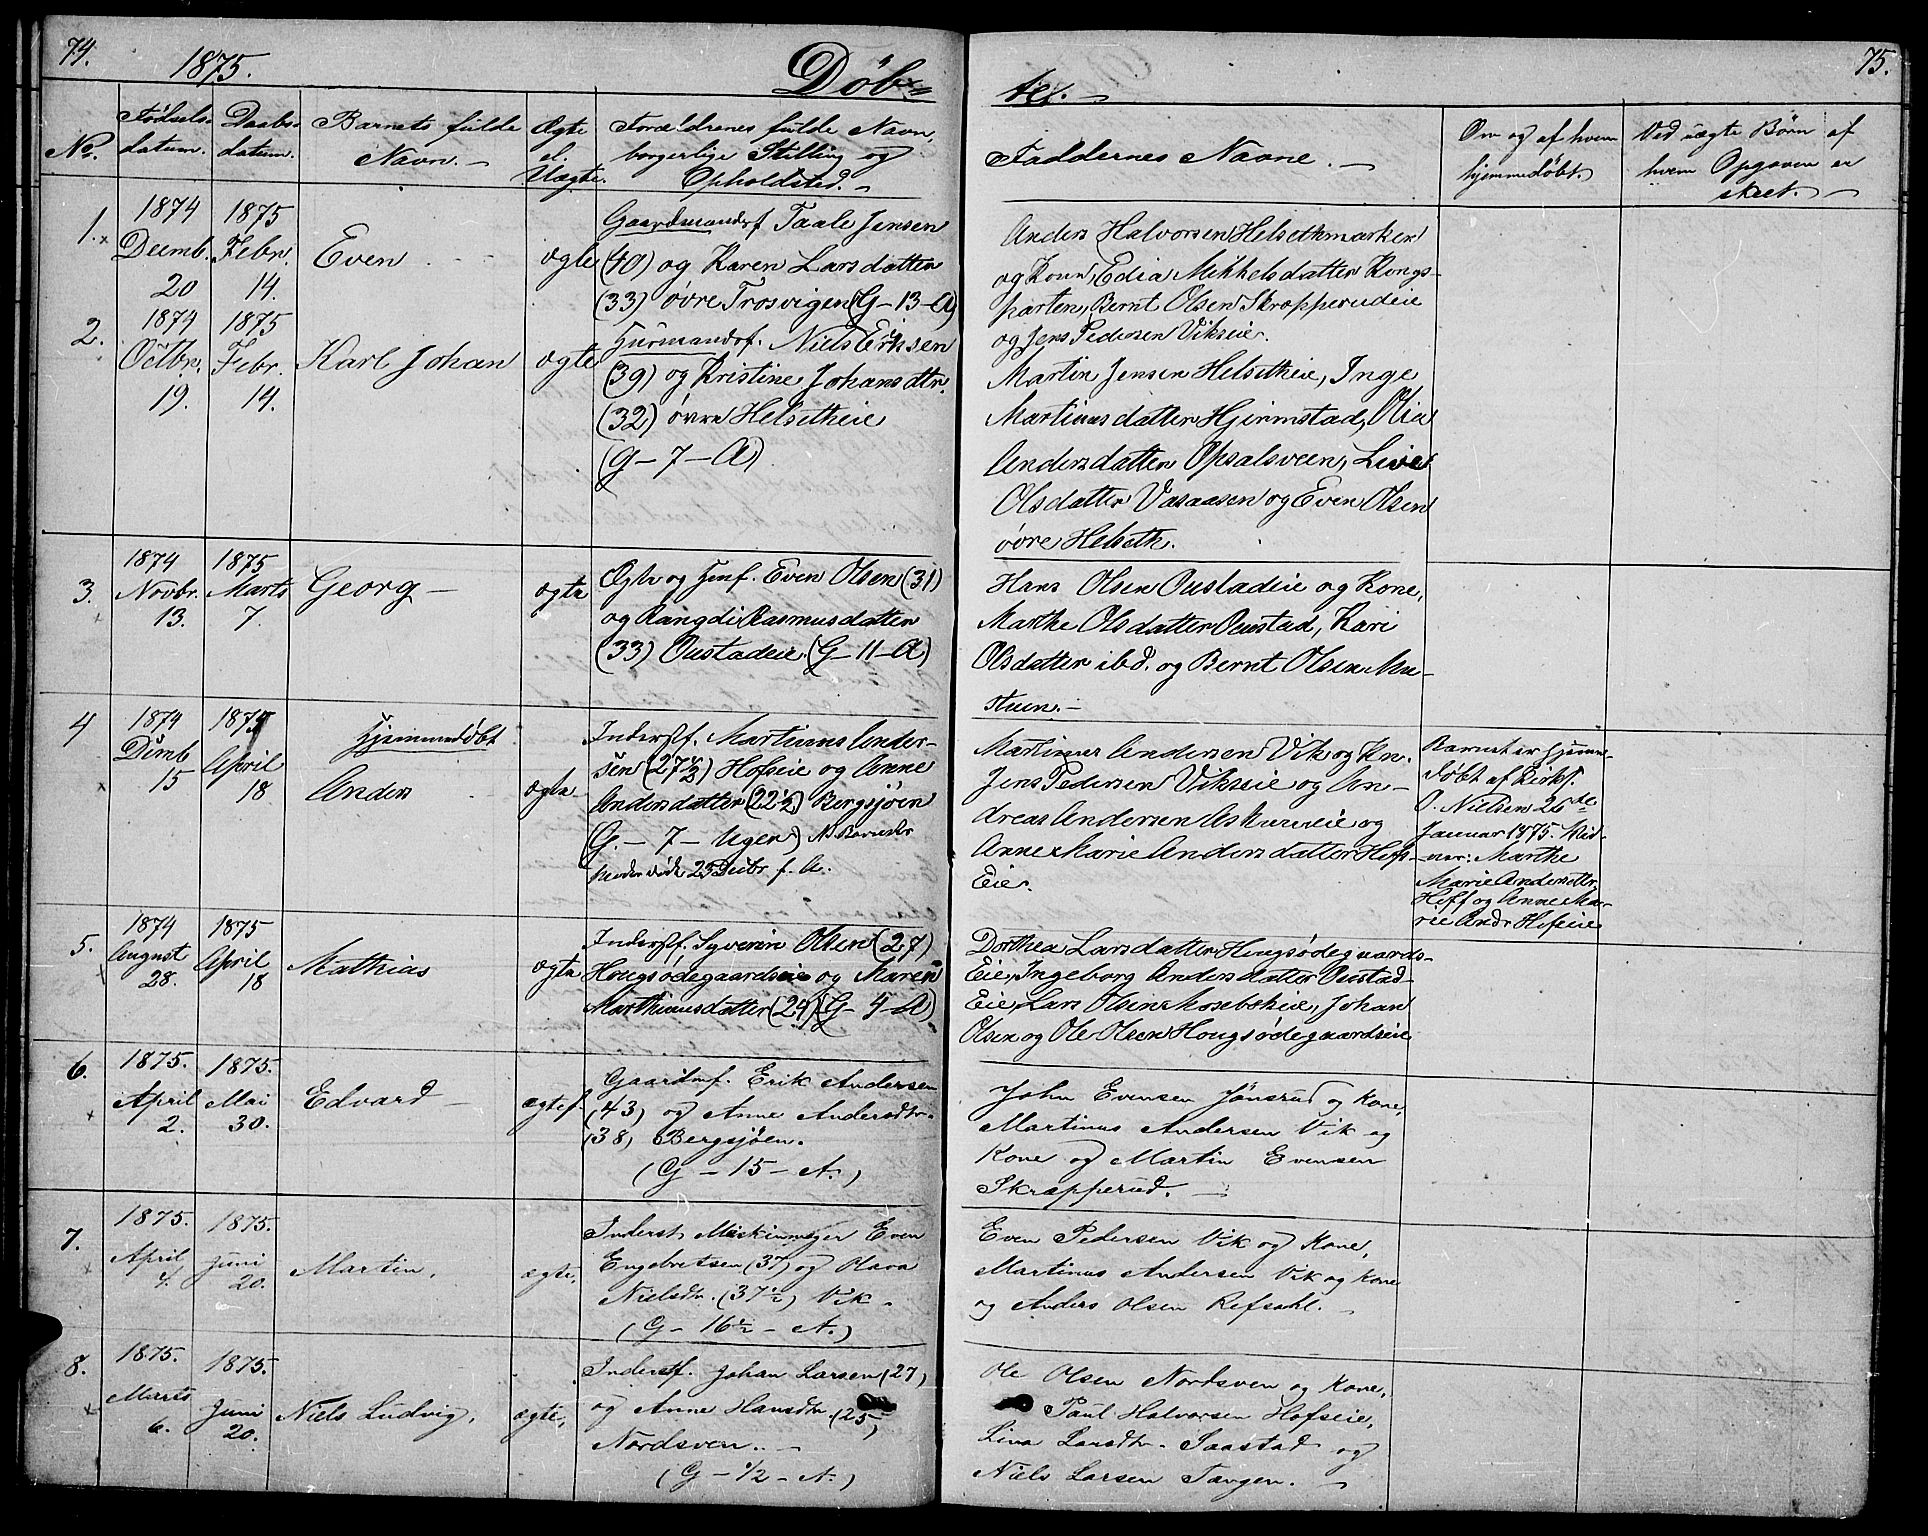 74.
1875.
Døb-
No.
Fødsels-
datum.
Daabs-
datum.
Barnets fulde
Navn. -
Ægte
el.
Uægte.
Forældrenes fulde Navn,
borgerlige Stilling og
Opholdsted. -
1.
1874
Decemb.
20
1875
Febr.
14.
Even
ægte
Gaardmandsf Taale Jensen
(40) og Karen Larsdatter
(33) øvre Trosvigen (G-13-A)
2.
1874
Octbr.
19.
1875
Febr.
14.
Karl Johan
ægte
Husmandsf. Niels Eriksen
(39) og Kristine Johansdtr.
(32) øvre Helsetheie
(G-7-A)
3.
1874
Novbr.
13.
1875
Marts
7.
Georg -
ægte
Even Olsen (31)
og Rangdi Rasmusdatter
(33) Oustadeie. (G-11-A)
4
1874
Dcmb
15
1875
April
18
Hjemmedøbt
Anders
ægte
Inderstf. Martinus Ander-
sen (27 1/2) Hofseie og Anne
Andersdatter (22 1/2) Bergsjøen
(G. - 7 - Uger)
5.
1874
August
28.
1875
April
18
Mathias
ægte
Inderstf. Syverin Olsen (27)
Hougsødegaardseie og Maren
Marthinusdatter (24) (G-4-A)
6.
1875.
April
2.
1875.
Mai
30.
Edvard -
ægtef.
Gaardmf. Erik Andersen
(43) og Anne Andersdtr.
(38) Bergsjøen.
(G-15-A.)
7.
1875.
April
4.
1875.
Juni
20.
Martin,
ægte,
Inderst, Even
Engebretsen (37) og Olava
Nielsdtr. (37 1/2) Vik.
(G-16 1/2-A.)
8.
1875.
Marts
6.
1875.
Juni
20.
Niels Ludvig,
ægte,
Inderstf. Johan Larsen (27)
og Anne Hansdtr. (25)
Nordsven. -
(G-1/2-A.)
75.
te. -
Faddernes Navne. -
Om og af hvem
hjemmedøbt.
Ved uægte Børn af
hvem Opgaven er
skeet. -
Anders Halvorsen Helsethmarken
og Kone, Edia Mikkelsdatter Kongs-
parten, Bernt Olsen Skrapperudeie
og Jens Pedersen Vikseie.
Martin Jensen Helsetheie, Inge
Martinusdatter Hjermstad, Olia
Andersdatter Opsalsveen, Live
Olsdatter Vasaasen og Even Olsen
øvre Helseth.
Hans Olsen Oustadeie og Kone,
Marthe Olsdatter Oustad, Kari
Olsdatter ibd. og Bernt Olsen Mu-
stuen. -
Martinus Andersen Vik og Kn.
Jens Pedersen Vikseie og An-
dreas Andersen og
Anne Marie Andersdatter Hofs-
Eie.
Barnet er hjemme-
døbt af Kirks.
O. Nielsen 26de
Januar 1875. Vid-
ner: Marthe
Marie Andersdtr.
Hoff og Anne Ma-
rie Andr Hofseie
Dorthea Larsdatter Hougsødegaards-
Eie, Ingeborg Andersdatter Oustad-
Eie, Lars Olsen Mosebækeie, Johan
Olsen og Ole Olsen Hougsødegaardseie
John Evensen Jønsrud og Kone,
Martinus Andersen Vik og
Kone og Martin Evensen
Skrapperud. -
Even Pedersen Vik og Kone,
Martinus Andersen Vik og Kone
og Anders Olsen Refsahl. -
Ole Olsen Nordsven og Kone,
Paul Halvorsen Hofseie,
Lina Larsdtr. Saastad og
Niels Larsen Tangen. -